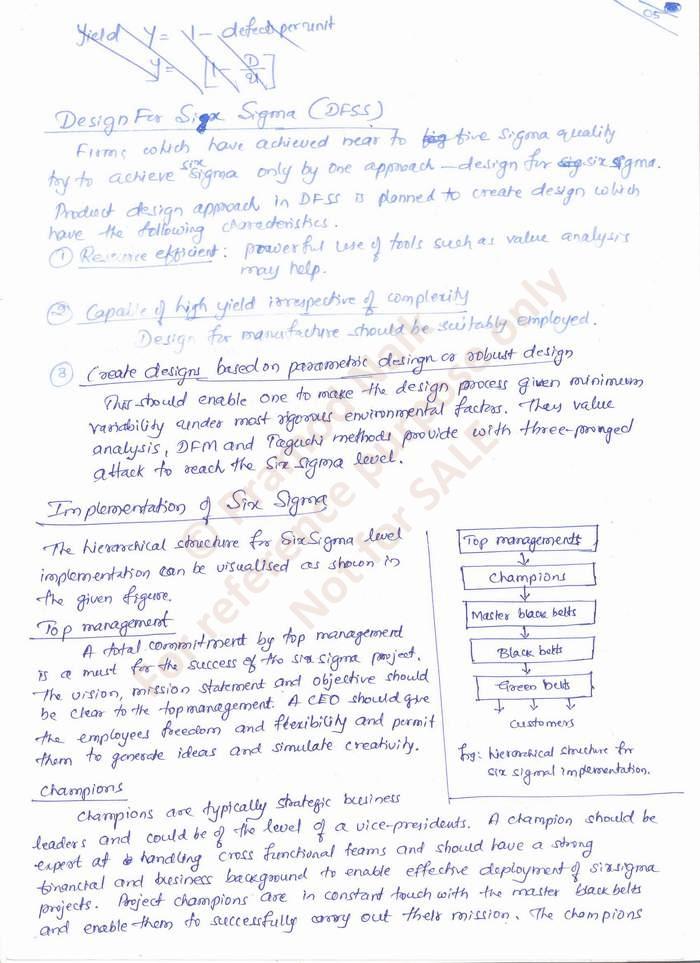 05
Yield Y = 1 - defect per unit
Y = [1 - D/U]
Design For Six Sigma (DFSS)
Firms which have achieved near to five sigma quality
try to achieve six sigma only by one approach - design for six sigma.
Product design approach in DFSS is planned to create design which
have the following characteristics.
① Resource efficient: powerful use of tools such as value analysis
may help.
② Capable of high yield irrespective of complexity
Design for manufacture should be suitably employed.
③ Create designs based on parametric design or robust design
This should enable one to make the design process given minimum
variability under most rigorous environmental factors. They value
analysis, DFM and Taguchi methods provide with three-pronged
attack to reach the six sigma level.
Implementation of Six Sigma
The hierarchical structure for Six Sigma level
implementation can be visualised as shown in
the given figure.
Top management
A total commitment by top management
is a must for the success of the six sigma project.
The vision, mission statement and objective should
be clear to the top management. A CEO should give
the employees freedom and flexibility and permit
them to generate ideas and simulate creativity.
Top managements
Champions
Master black belts
Black belts
Green belts
Customers
fig: hierarchical structure for
six sigmal implementation.
Champions
Champions are typically strategic business
leaders and could be of the level of a vice-presidents. A champion should be
expert at handling cross functional teams and should have a strong
financial and business background to enable effective deployment of six sigma
projects. Project champions are in constant touch with the master black belts
and enable them to successfully carry out their mission. The champions
© Pramod Naik
For reference purpose only
Not for SALE